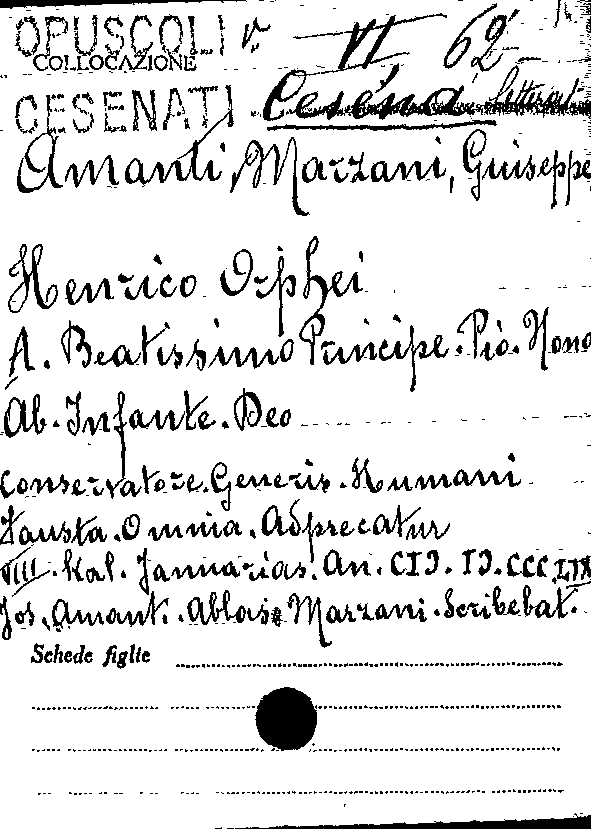 OPUSCOLI V. VI 62
COLLOCAZIONE
CESENATI Cesena
Amanti, Marzani, Giuseppe
Henrico Orphei
A. Beatissimo Principe. Pio. Nono
Ab. Infante. Deo
Conservatore. Generis. Humani
Fausta. Omnia. Adprecatur
VIII. Kal. Januarias. An. CIƆ. IƆ. CCC. LIX
Jos. Amant. Abbas Marzani. Scribebat.
Schede figlie